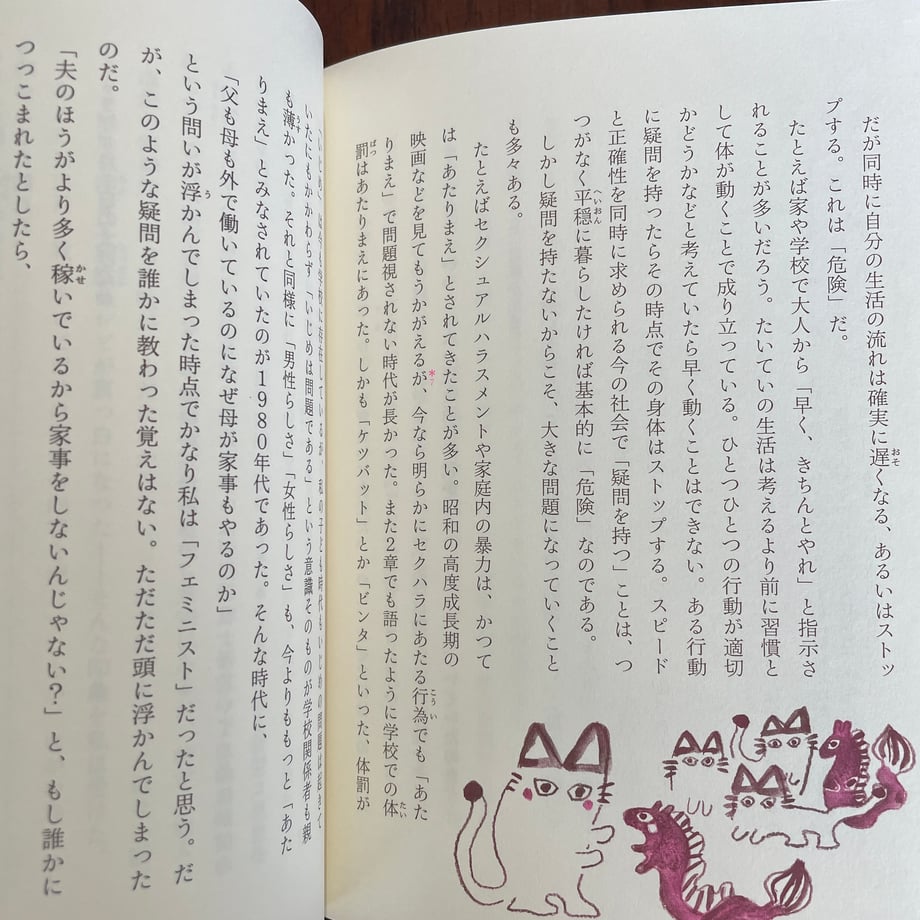 だが同時に自分の生活の流れは確実に遅くなる、あるいはストッ
プする。これは「危険」だ。
たとえば家や学校で大人から「早く、きちんとやれ」と指示さ
れることが多いだろう。たいていの生活は考えるより前に習慣と
して体が動くことで成り立っている。ひとつひとつの行動が適切
かどうかなどと考えていたら早く動くことはできない。ある行動
に疑問を持ったらその時点でその身体はストップする。スピード
と正確性を同時に求められる今の社会で「疑問を持つ」ことは、つ
つがなく平穏に暮らしたければ基本的に「危険」なのである。
しかし疑問を持たないからこそ、大きな問題になっていくこと
も多々ある。
たとえばセクシュアルハラスメントや家庭内の暴力は、かつて
は「あたりまえ」とされてきたことが多い。昭和の高度成長期の
映画などを見てもうかがえるが、今なら明らかにセクハラにあたる行為でも「あた
りまえ」で問題視されない時代が長かった。また2章でも語ったように学校での体
罰はあたりまえにあった。しかも「ケツバット」とか「ビンタ」といった、体罰が
いたにもかかわらず「いじめは問題である」という意識そのものが学校関係者も親
も薄かった。それと同様に「男性らしさ」「女性らしさ」も、今よりももっと「あた
りまえ」とみなされていたのが1980年代であった。そんな時代に、
「父も母も外で働いているのになぜ母が家事もやるのか」
という問いが浮かんでしまった時点でかなり私は「フェミニスト」だったと思う。だ
が、このような疑問を誰かに教わった覚えはない。ただただ頭に浮かんでしまった
のだ。
「夫のほうがより多く稼いでいるから家事をしないんじゃない？」と、もし誰かに
つっこまれたとしたら、